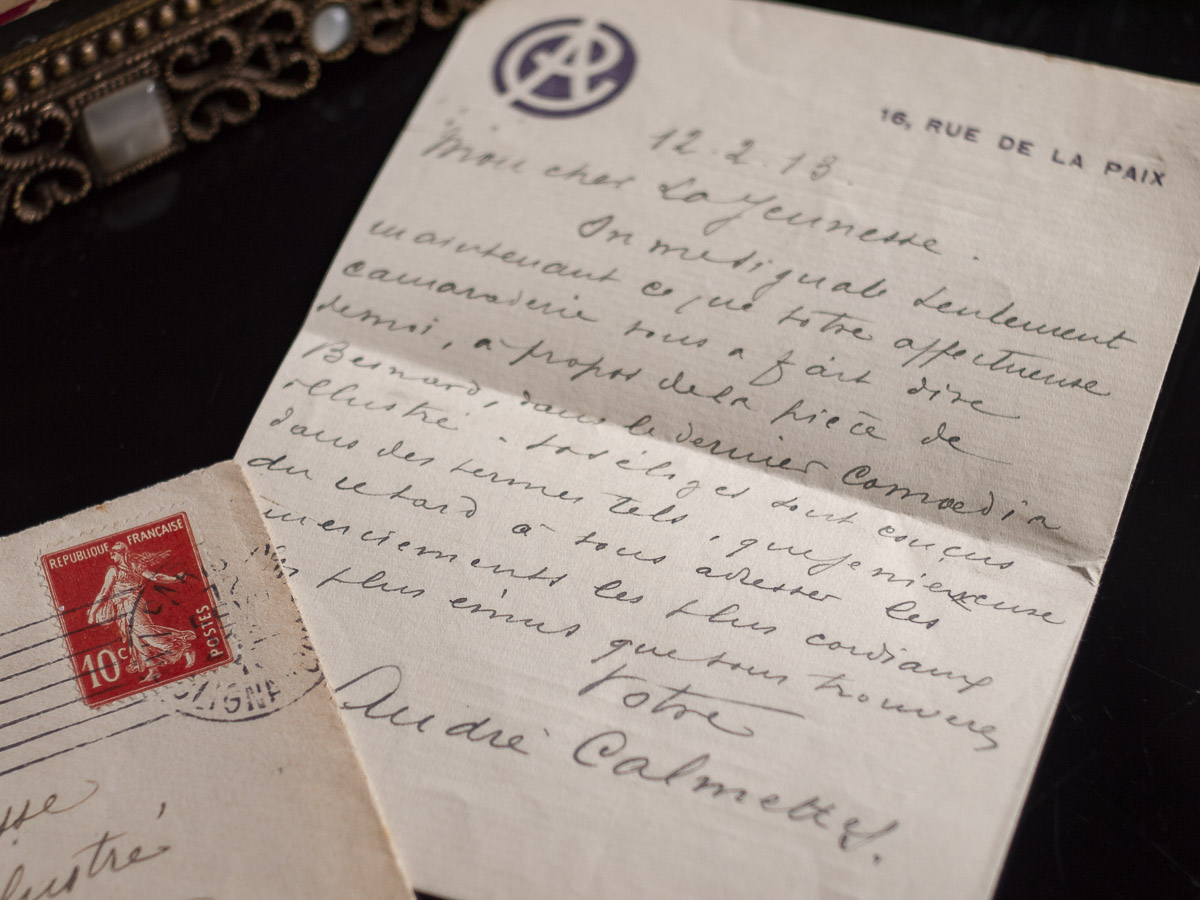 16, RUE DE LA PAIX
12.2.13.
Mon cher La Jeunesse.
On me signale seulement
maintenant ce que votre affectueuse
camaraderie vous a fait dire
de moi, à propos de la pièce de
Bernard, dans le dernier Comoedia
illustré - vos éloges sont conçus
dans des termes tels, que je m'excuse
du retard à vous adresser les
remerciements les plus cordiaux
plus émus que vous trouverez
Votre
André Calmettes.
RÉPUBLIQUE FRANÇAISE
POSTES
10c
sse
llustré